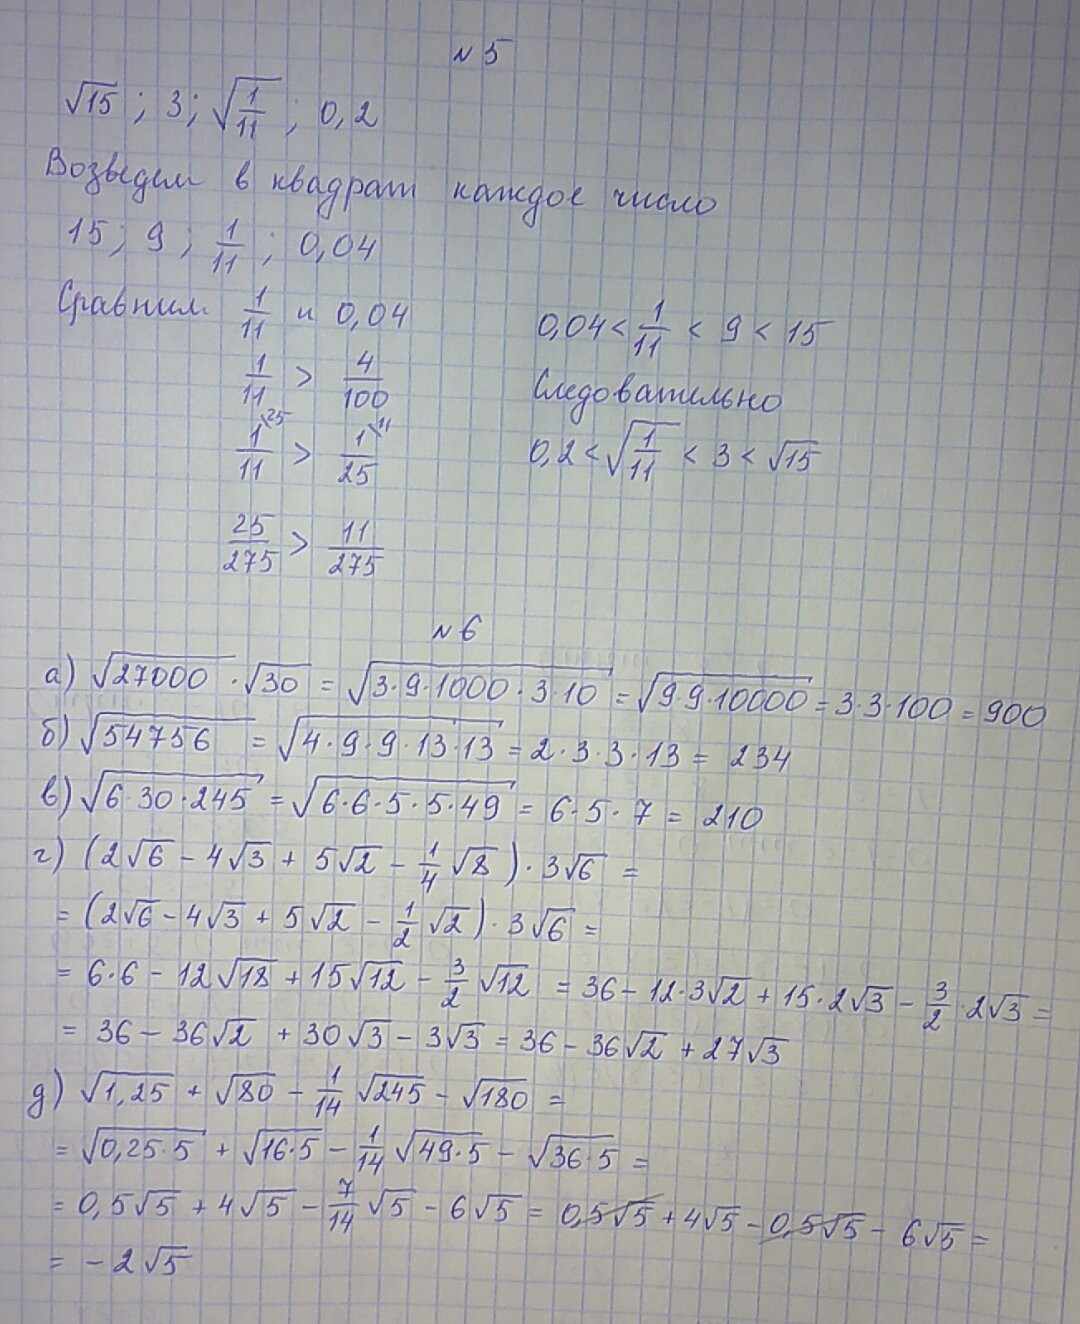 №5
√15 ; 3; √(1/11) ; 0,2
Возведем в квадрат каждое число
15; 9; 1/11 ; 0,04
Сравним 1/11 и 0,04
1/11 > 4/100
1/11 \25 > 1/25 \11
25/275 > 11/275
0,04 < 1/11 < 9 < 15
Следовательно
0,2 < √(1/11) < 3 < √15
№6
а) √27000 · √30 = √(3·9·1000·3·10) = √(9·9·10000) = 3·3·100 = 900
б) √54756 = √(4·9·9·13·13) = 2·3·3·13 = 234
в) √(6·30·245) = √(6·6·5·5·49) = 6·5·7 = 210
г) (2√6 − 4√3 + 5√2 − 1/4 √8) · 3√6 =
= (2√6 − 4√3 + 5√2 − 1/2 √2) · 3√6 =
= 6·6 − 12√18 + 15√12 − 3/2 √12 = 36 − 12·3√2 + 15·2√3 − 3/2 · 2√3 =
= 36 − 36√2 + 30√3 − 3√3 = 36 − 36√2 + 27√3
д) √1,25 + √80 − 1/14 √245 − √180 =
= √(0,25·5) + √(16·5) − 1/14 √(49·5) − √(36·5) =
= 0,5√5 + 4√5 − 7/14 √5 − 6√5 = 0,5√5 + 4√5 − 0,5√5 − 6√5 =
= −2√5